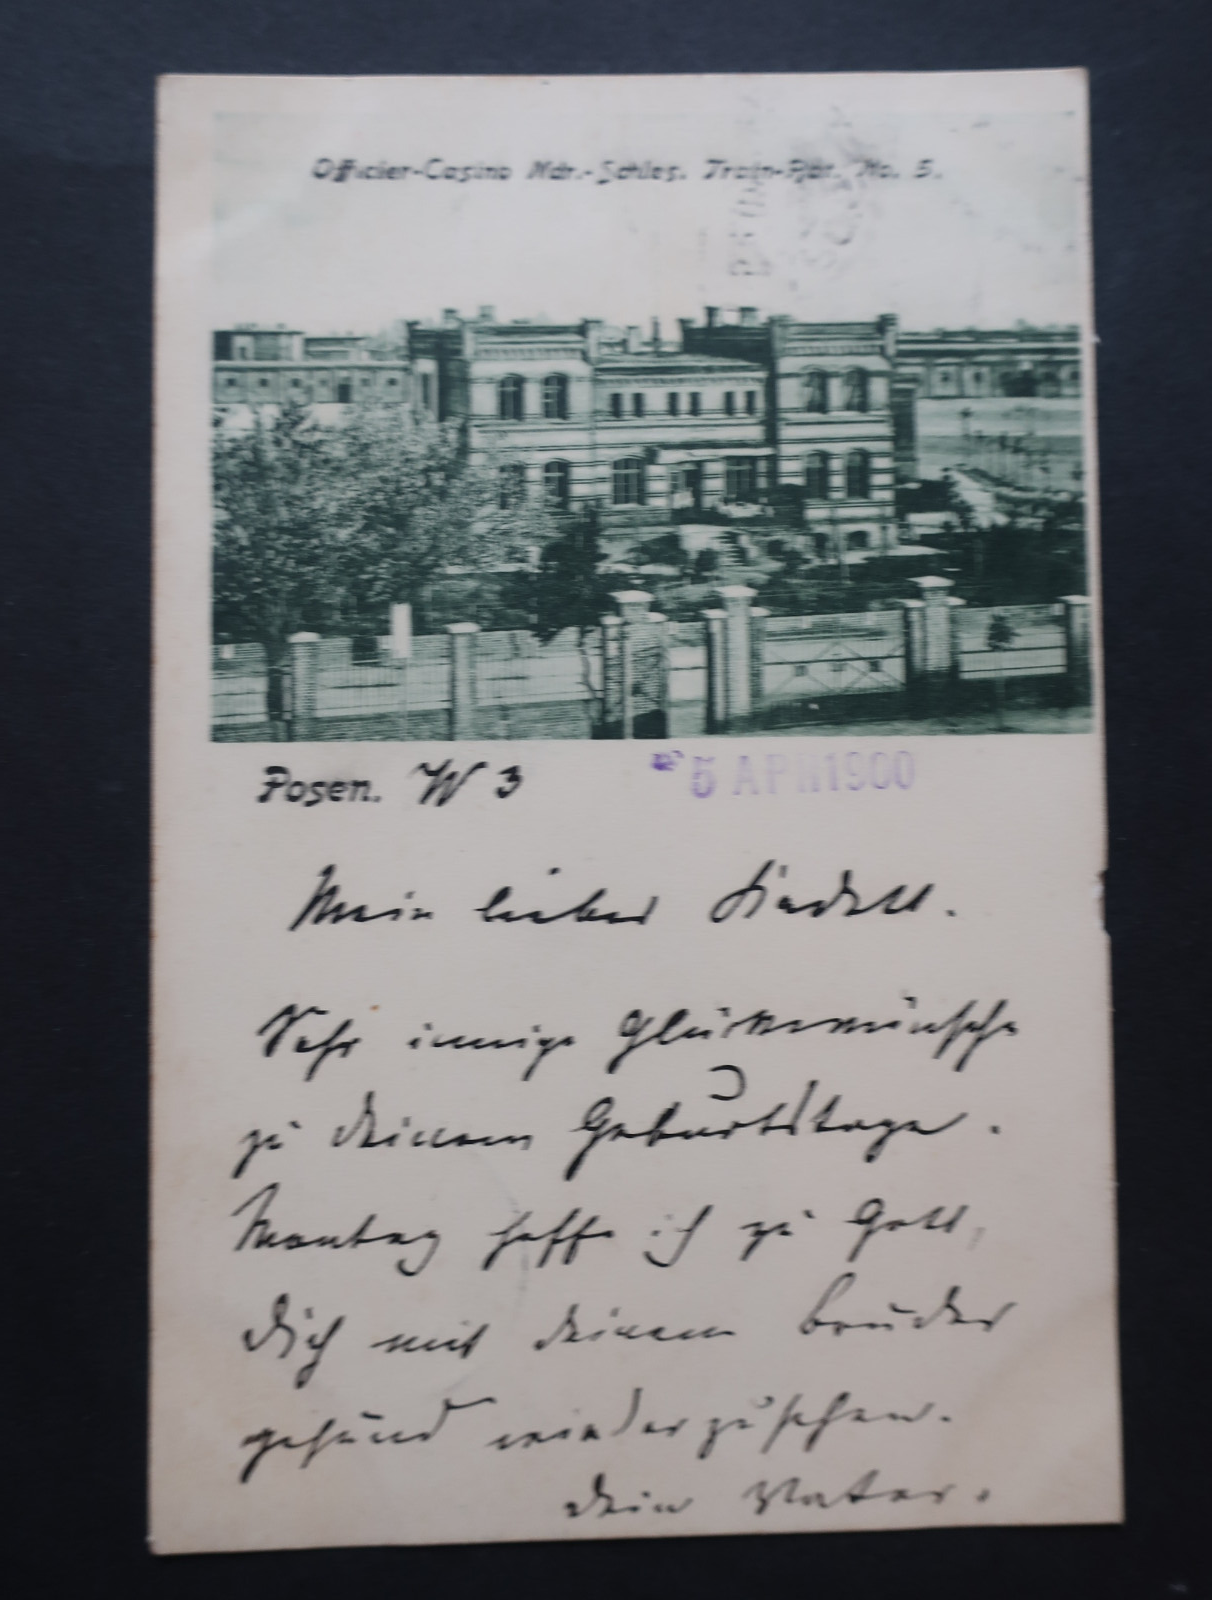 Officier-Casino Ndr.-Schles. Train-Abt. No. 5.
Posen. W 3
5 APR 1900
Mein lieber Kadett.
Sehr innige Glückwünsche
zu deinem Geburtstage.
Montag hoffe ich zu Gott,
dich mit deinem Bruder
gesund wiederzusehen.
dein Vater.